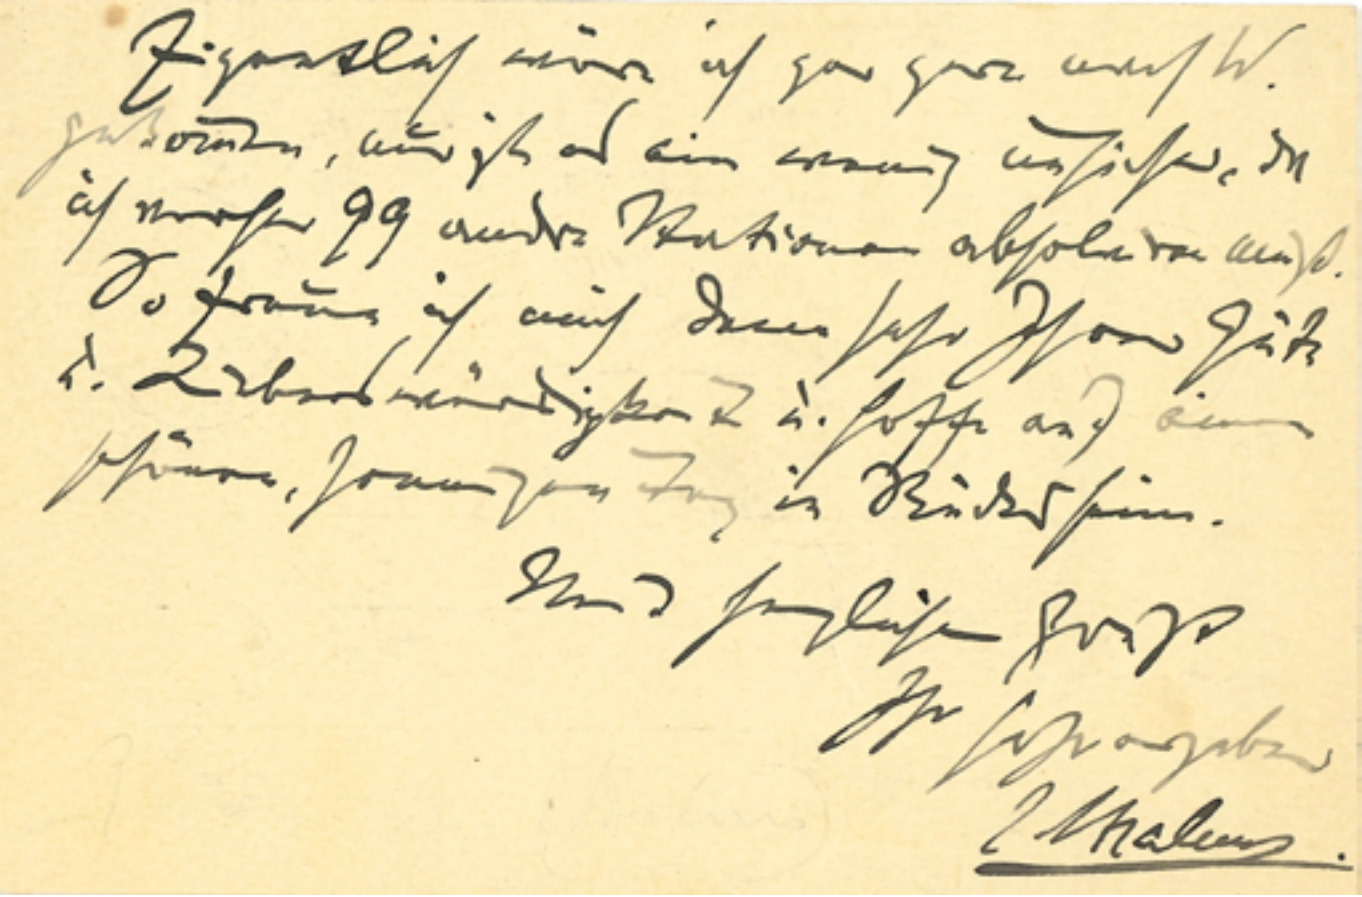 Eigentlich wäre ich gar gern nach W.
gekommen, nur ist es ein wenig unsicher, da
ich vorher 99 andre Stationen absolvieren muß.
So freue ich mich denn sehr Ihrer Güte
u. Liebenswürdigkeit u. hoffe auf einen
schönen, sonnigen Tag in Rüdesheim.
Und herzlichen Gruß
Ihr sehr ergebener